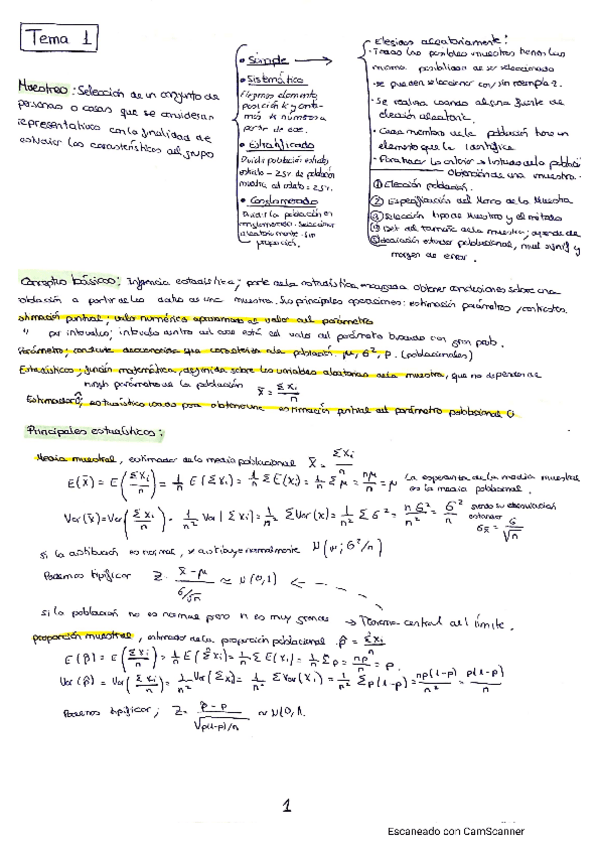 Tema 1
Muestreo: Selección de un conjunto de
personas o cosas que se consideran
representativos con la finalidad de
estudiar las características del grupo
• Simple →
• Sistemático
Elegimos elemento
posición k y
más k números a
partir de ese.
• Estratificado
Divide población estratos
estrato - 25% de población
muestra del estrato = 25%.
• Conglomerado
Dividir la población en
conglomerados. Seleccionar
aleatoriamente. Sin
Elegidos aleatoriamente:
· Todas las posibles muestras tienen la
misma posibilidad de ser seleccionada
· Se pueden seleccionar con/sin reempla
· Se realiza usando alguna fuente de
elección aleatoria.
· Cada miembro de la población tiene un
elemento que lo identifica
· Para hacer lo anterior → listado de la població
Obtención de una muestra.
① Elección población.
② Especificación del Marco de la Muestra
③ Selección tipo de Muestreo y el método
④ Det. del tamaño de la muestra; depende de
desviación estándar poblacional, nivel signif y
margen de error.
Conceptos básicos: Inferencia estadística; parte de la estadística encargada obtener conclusiones sobre una
población a partir de los datos de una muestra. Sus principales operaciones: estimación parámetros, contrastes.
stimación puntual; valor numérico aproximado al valor del parámetro
" por intervalos; intervalo dentro del cual está el valor del parámetro buscado con gran prob.
Parámetro; constante desconocida que caracteriza a la población μ, σ², p. (poblacionales)
Estadísticos; función matemática, definida sobre las variables aleatorias de la muestra, que no depende de
ningún parámetro de la población x̄ = Σxi/n
Estimador θ̂; estadístico usado para obtener una estimación puntual del parámetro poblacional θ
Principales estadísticos:
Media muestral, estimador de la media poblacional x̄ = Σxi/n
E(x̄) = E(Σxi/n) = 1/n E(Σxi) = 1/n ΣE(xi) = 1/n Σμ = nμ/n = μ La esperanza de la media muestral
es la media poblacional.
Var(x̄) = Var(Σxi/n) = 1/n² Var(Σxi) = 1/n² ΣVar(x) = 1/n² Σσ² = nσ²/n² = σ²/n siendo su desviación
estándar
σx̄ = σ/√n
si la distribución es normal, x̄ distribuye normalmente N(μ; σ²/n)
Podemos tipificar Z = x̄-μ / σ/√n ≈ N(0,1) ←
si la población no es normal pero n es muy grande → Teorema central del límite.
proporción muestral, estimador de la proporción poblacional p̂ = Σxi/n
E(p̂) = E(Σxi/n) = 1/n E(Σxi) = 1/n ΣE(xi) = 1/n Σp = np/n = p.
Var(p̂) = Var(Σxi/n) = 1/n² Var(Σxi) = 1/n² ΣVar(xi) = 1/n² Σp(1-p) = np(1-p)/n² = p(1-p)/n
Podemos tipificar; Z = p̂-p / √p(1-p)/n ≈ N(0,1.
1
Escaneado con CamScanner